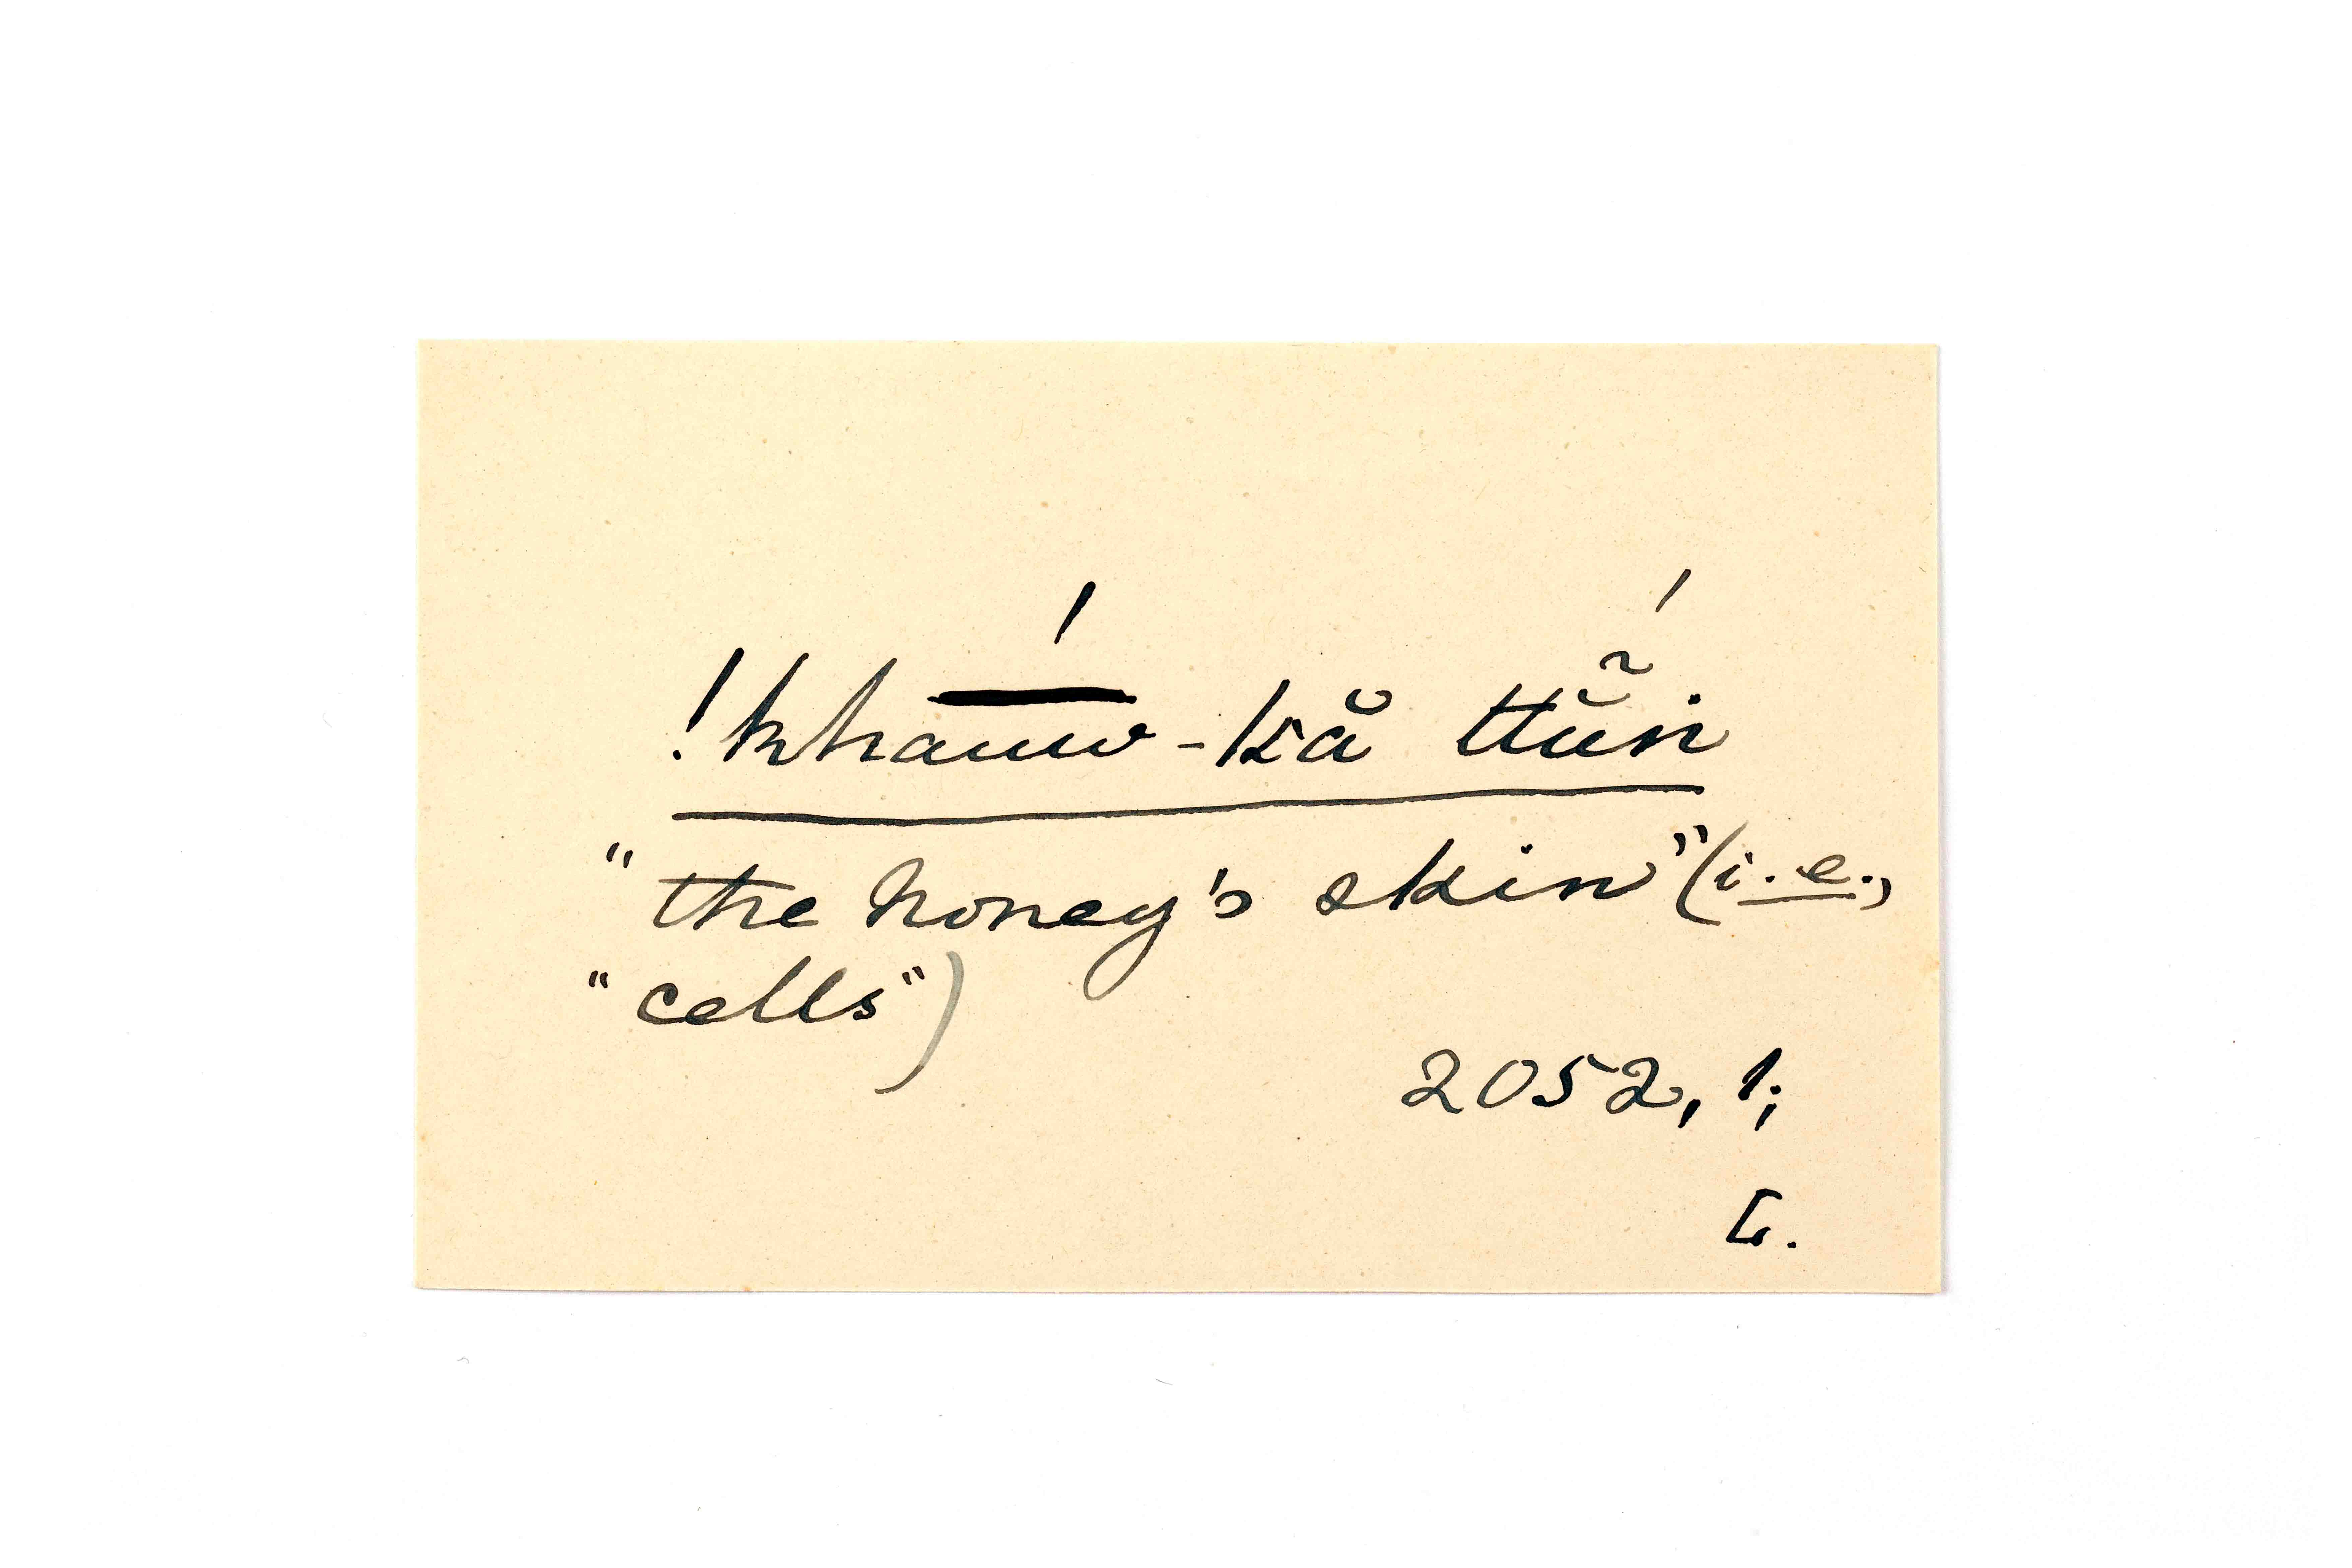 !kháuw-kă ttŭ̃ń
"the honey's skin" (i.e.,
"cells")
2052, 1;
L.